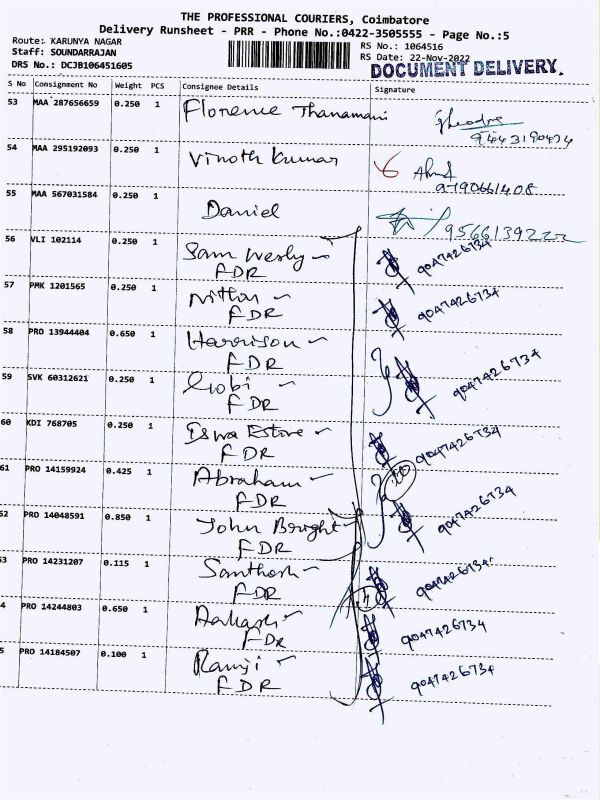 THE PROFESSIONAL COURIERS, Coimbatore
Delivery Runsheet - PRR - Phone No.:0422-3505555 - Page No.:5
Route: KARUNYA NAGAR RS No.: 1064516
Staff: SOUNDARRAJAN RS Date: 22-Nov-2022
DRS No.: DCJB106451605 DOCUMENT DELIVERY.
S No Consignment No Weight PCS Consignee Details Signature
53 MAA 287656659 0.250 1 Florence Thanamani
9443190474
54 MAA 295192093 0.250 1 Vinoth Kumar
9790661408
55 MAA 567031584 0.250 1 Daniel
56 VLI 102114 0.250 1 Sam Wesly 9047426734
FDR
57 PMK 1201565 0.250 1 Nitton 9047426734
FDR
58 PRO 13944404 0.650 1 Harrison
FDR 9047426734
59 SVK 60312621 0.250 1 Gobi
FDR
60 KDI 768705 0.250 1 Estove 9047426734
FDR
61 PRO 14159924 0.425 1 Abraham 10
FDR
52 PRO 14048591 0.850 1 John Bright 9047426734
FDR
53 PRO 14231207 0.115 1 Santhosh 9047426734
FDR
4 PRO 14244803 0.650 1 Aakash 9047426734
FDR
5 PRO 14184507 0.100 1 Ramji 9047426734
FDR